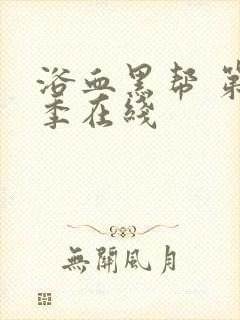 浴血黑帮 第
季在线
無關風月